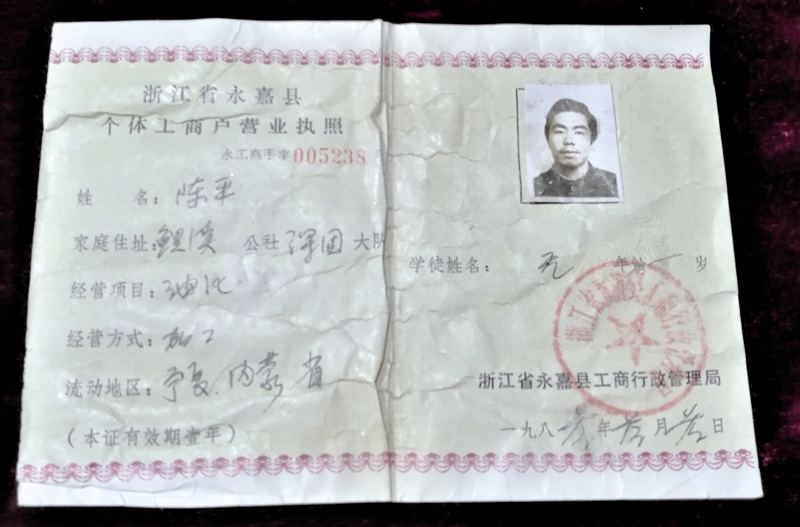 浙江省永嘉县
个体工商户营业执照
永工商手字005238
姓 名：陈平
家庭住址：鲤溪 公社 大队
经营项目：油化
经营方式：加工
流动地区：宁夏、内蒙省
（本证有效期壹年）
学徒姓名：无 年龄 一 岁
浙江省永嘉县工商行政管理局
一九八 年 月 日